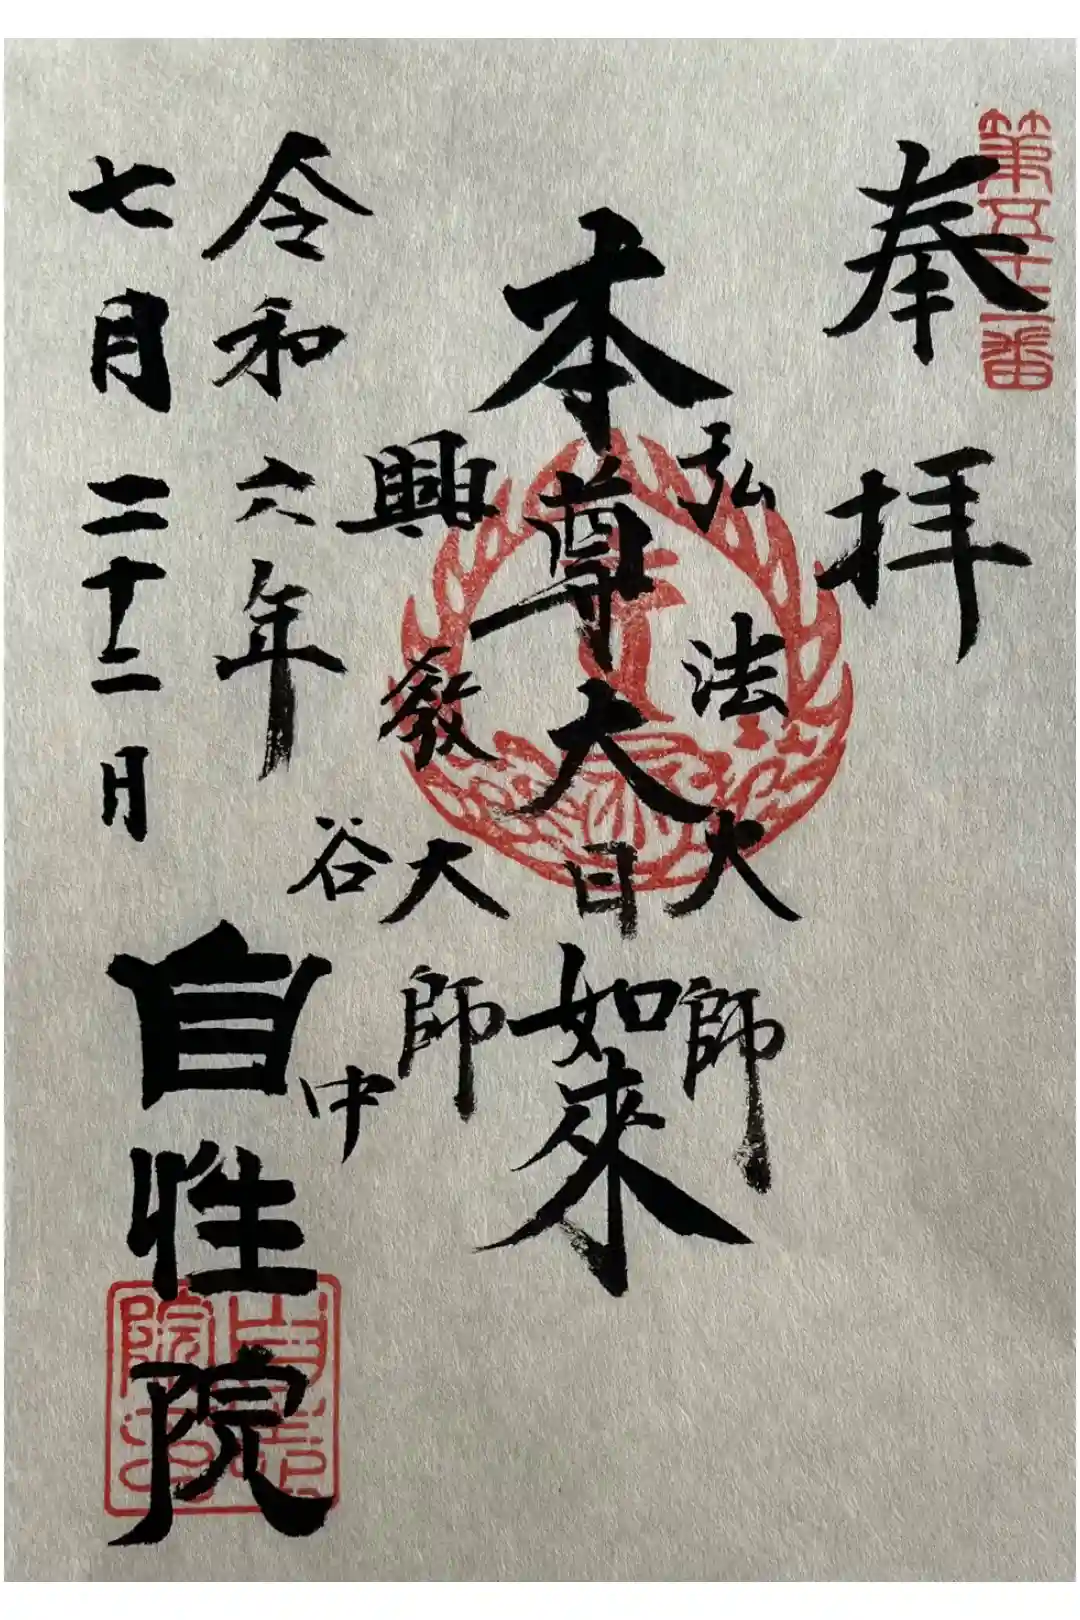 奉拝
弘法大師
本尊大日如來
興教大師
令和六年
七月二十二日
谷中
自性院